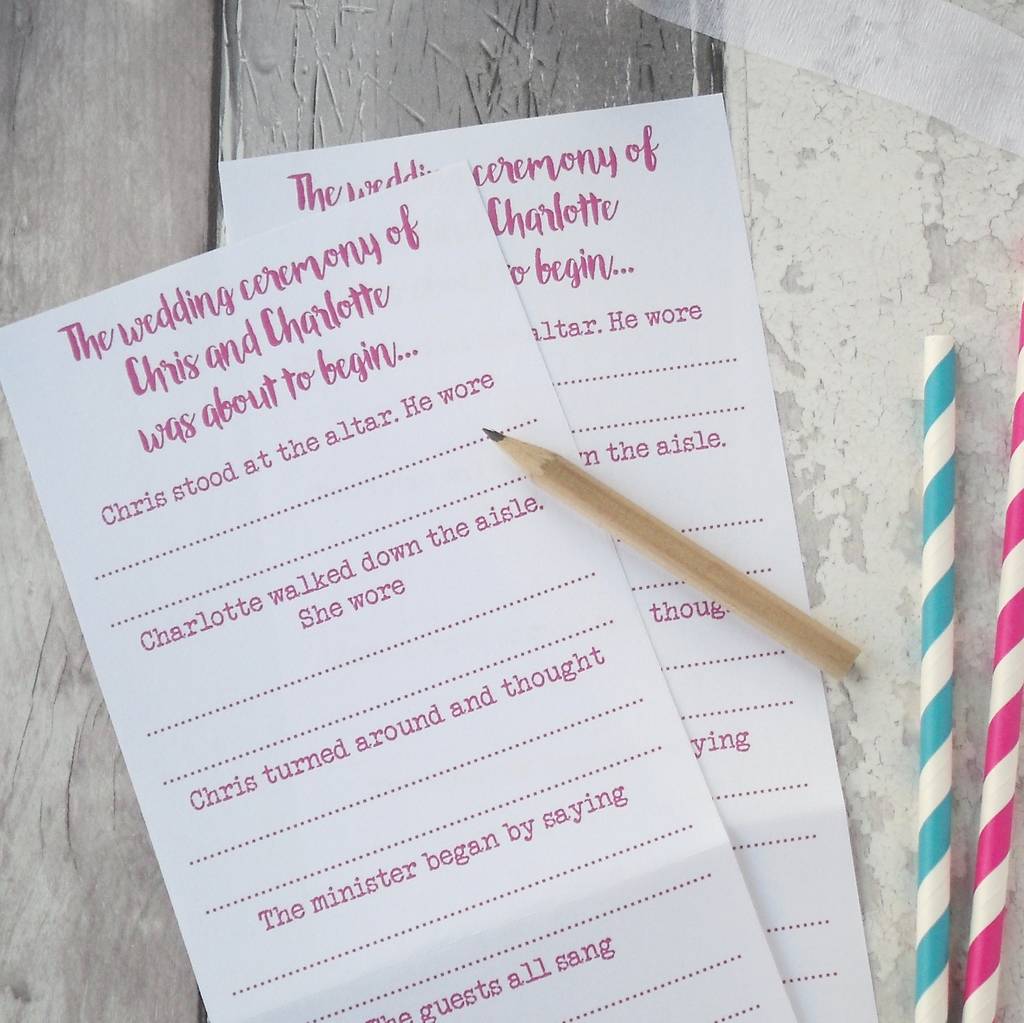 The wedding ceremony of
Chris and Charlotte
was about to begin...
Chris stood at the altar. He wore
Charlotte walked down the aisle.
She wore
Chris turned around and thought
The minister began by saying
The guests all sang
The wedding ceremony of
Charlotte
to begin...
altar. He wore
the aisle.